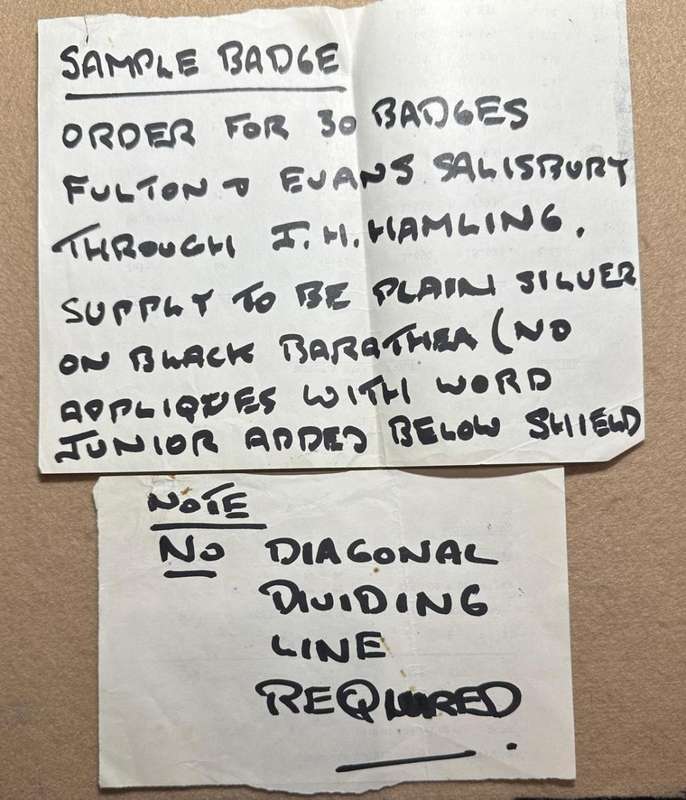 SAMPLE BADGE
ORDER FOR 30 BADGES
FULTON & EVANS SALISBURY
THROUGH J.H.HAMLING.
SUPPLY TO BE PLAIN SILVER
ON BLACK BARATHEA (NO
APPLIQUES WITH WORD
JUNIOR ADDED BELOW SHIELD
NOTE
NO DIAGONAL
DIVIDING
LINE
REQUIRED